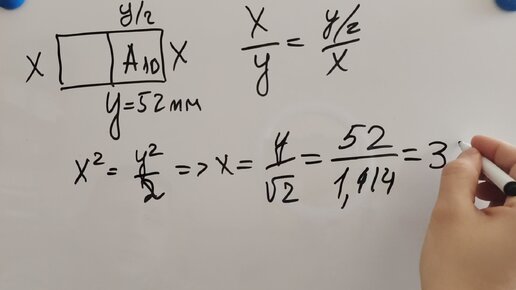 y/2
X A10 X
y=52мм
X/y = y/2/X
X² = y²/2 => X = y/√2 = 52/1,414 = 3